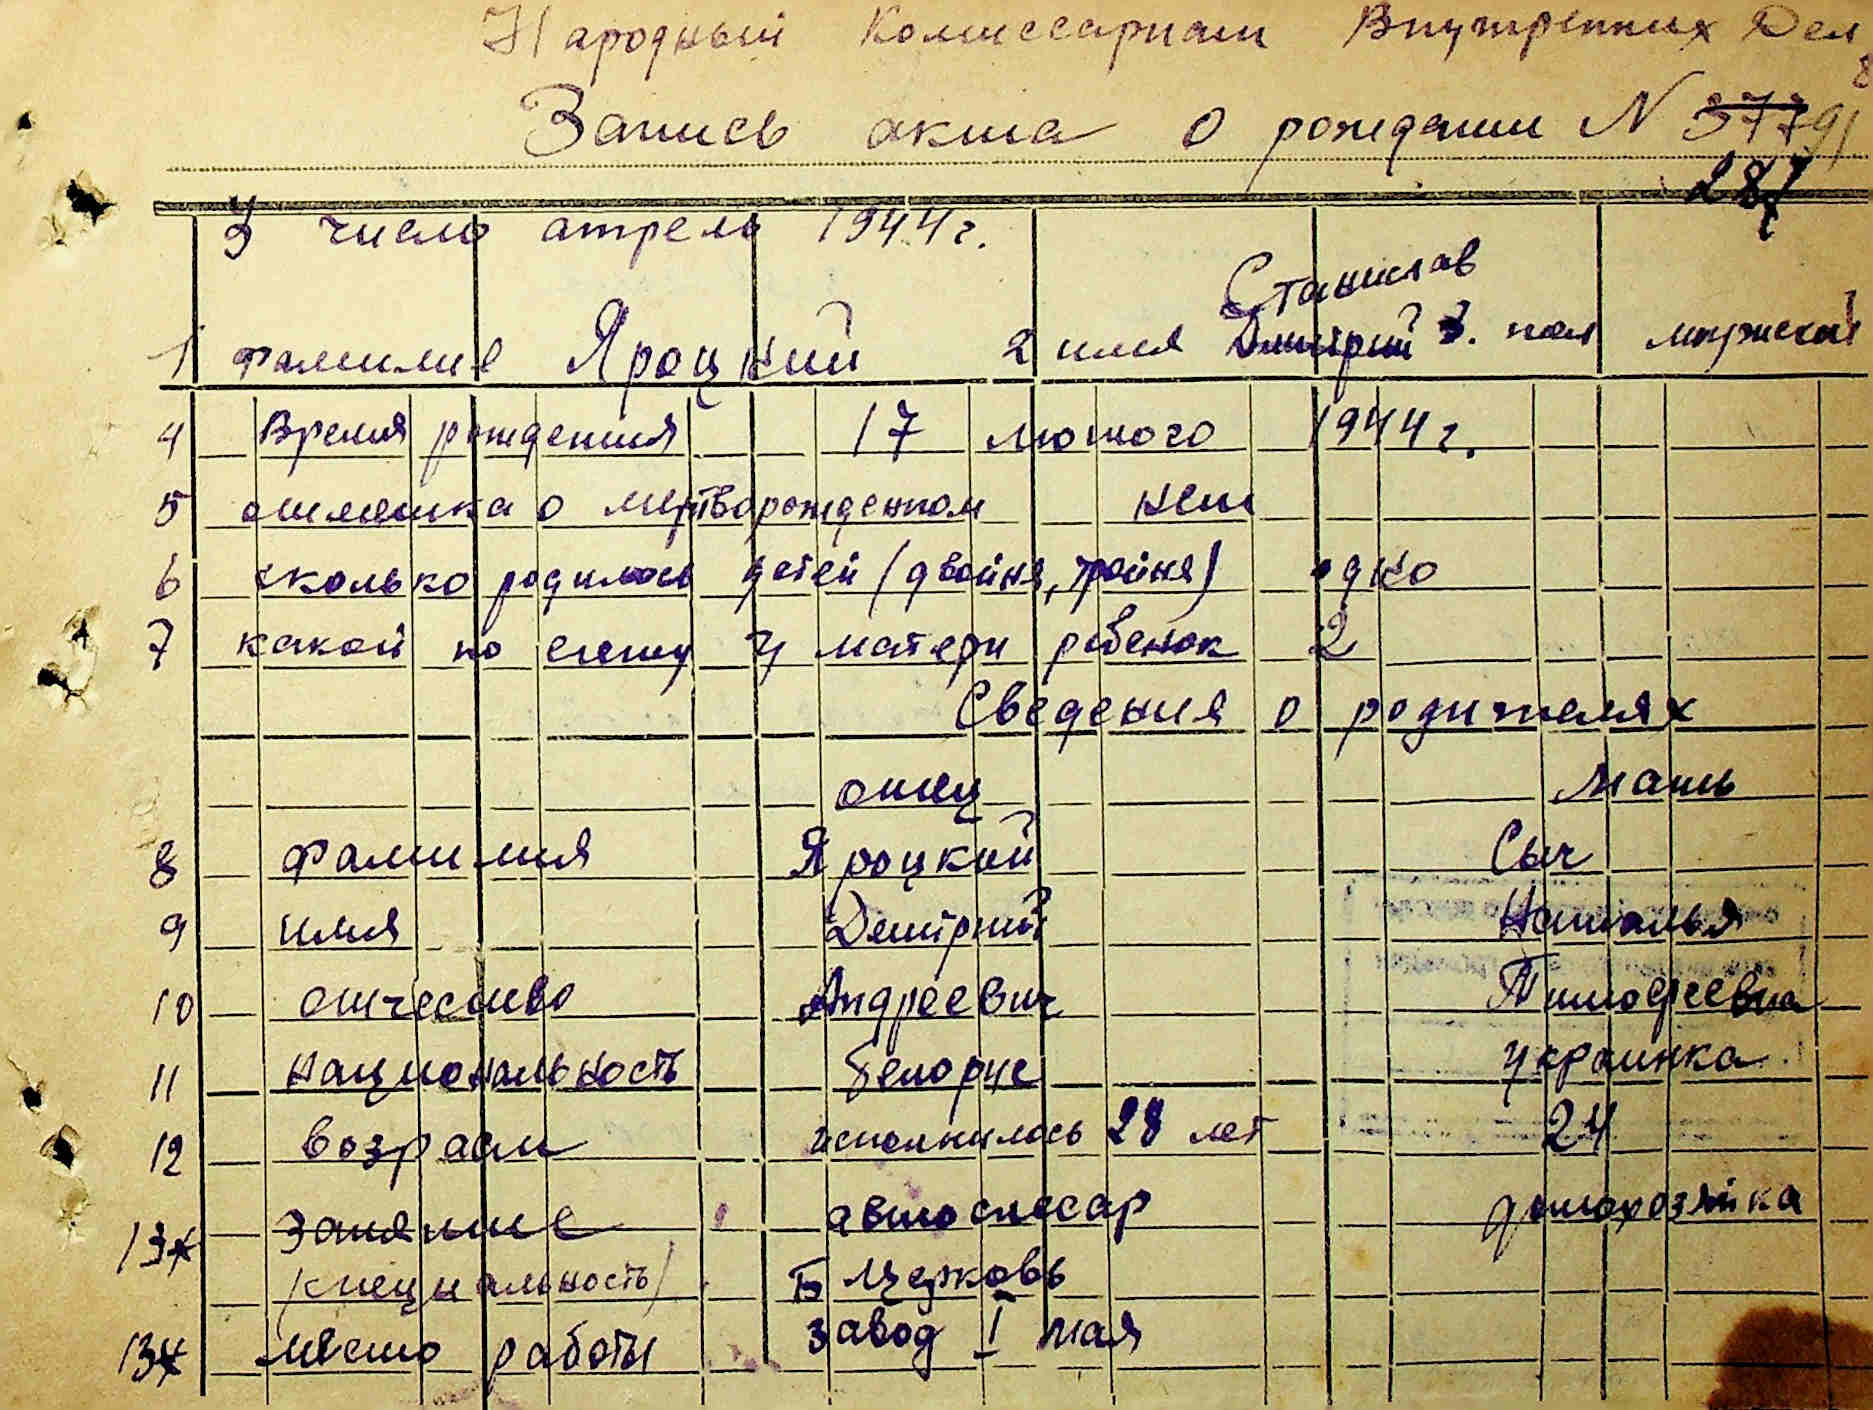 Народный Комиссариат Внутренних Дел
Запись акта о рождении N 377 91
287
3 число апрель 1944 г.
Станислав
1 фамилие Яроцкий 2 имя Дмитрий 3. пол мужской
4 Время рождения 17 лютого 1944 г.
5 отметка о мертворожденном нет
6 сколько родилось детей (двойня, тройня) одно
7 какой по счету у матери ребенок 2
Сведения о родителях
отец мать
8 фамилия Яроцкий Сыч
9 имя Дмитрий Наталья
10 отчество Андреевич Тимофеевна
11 национальность белорус украинка
12 возраст исполнилось 28 лет 24
13 занятие автослесар домохозяйка
(специальность) Б Церковь
13 место работы завод I мая